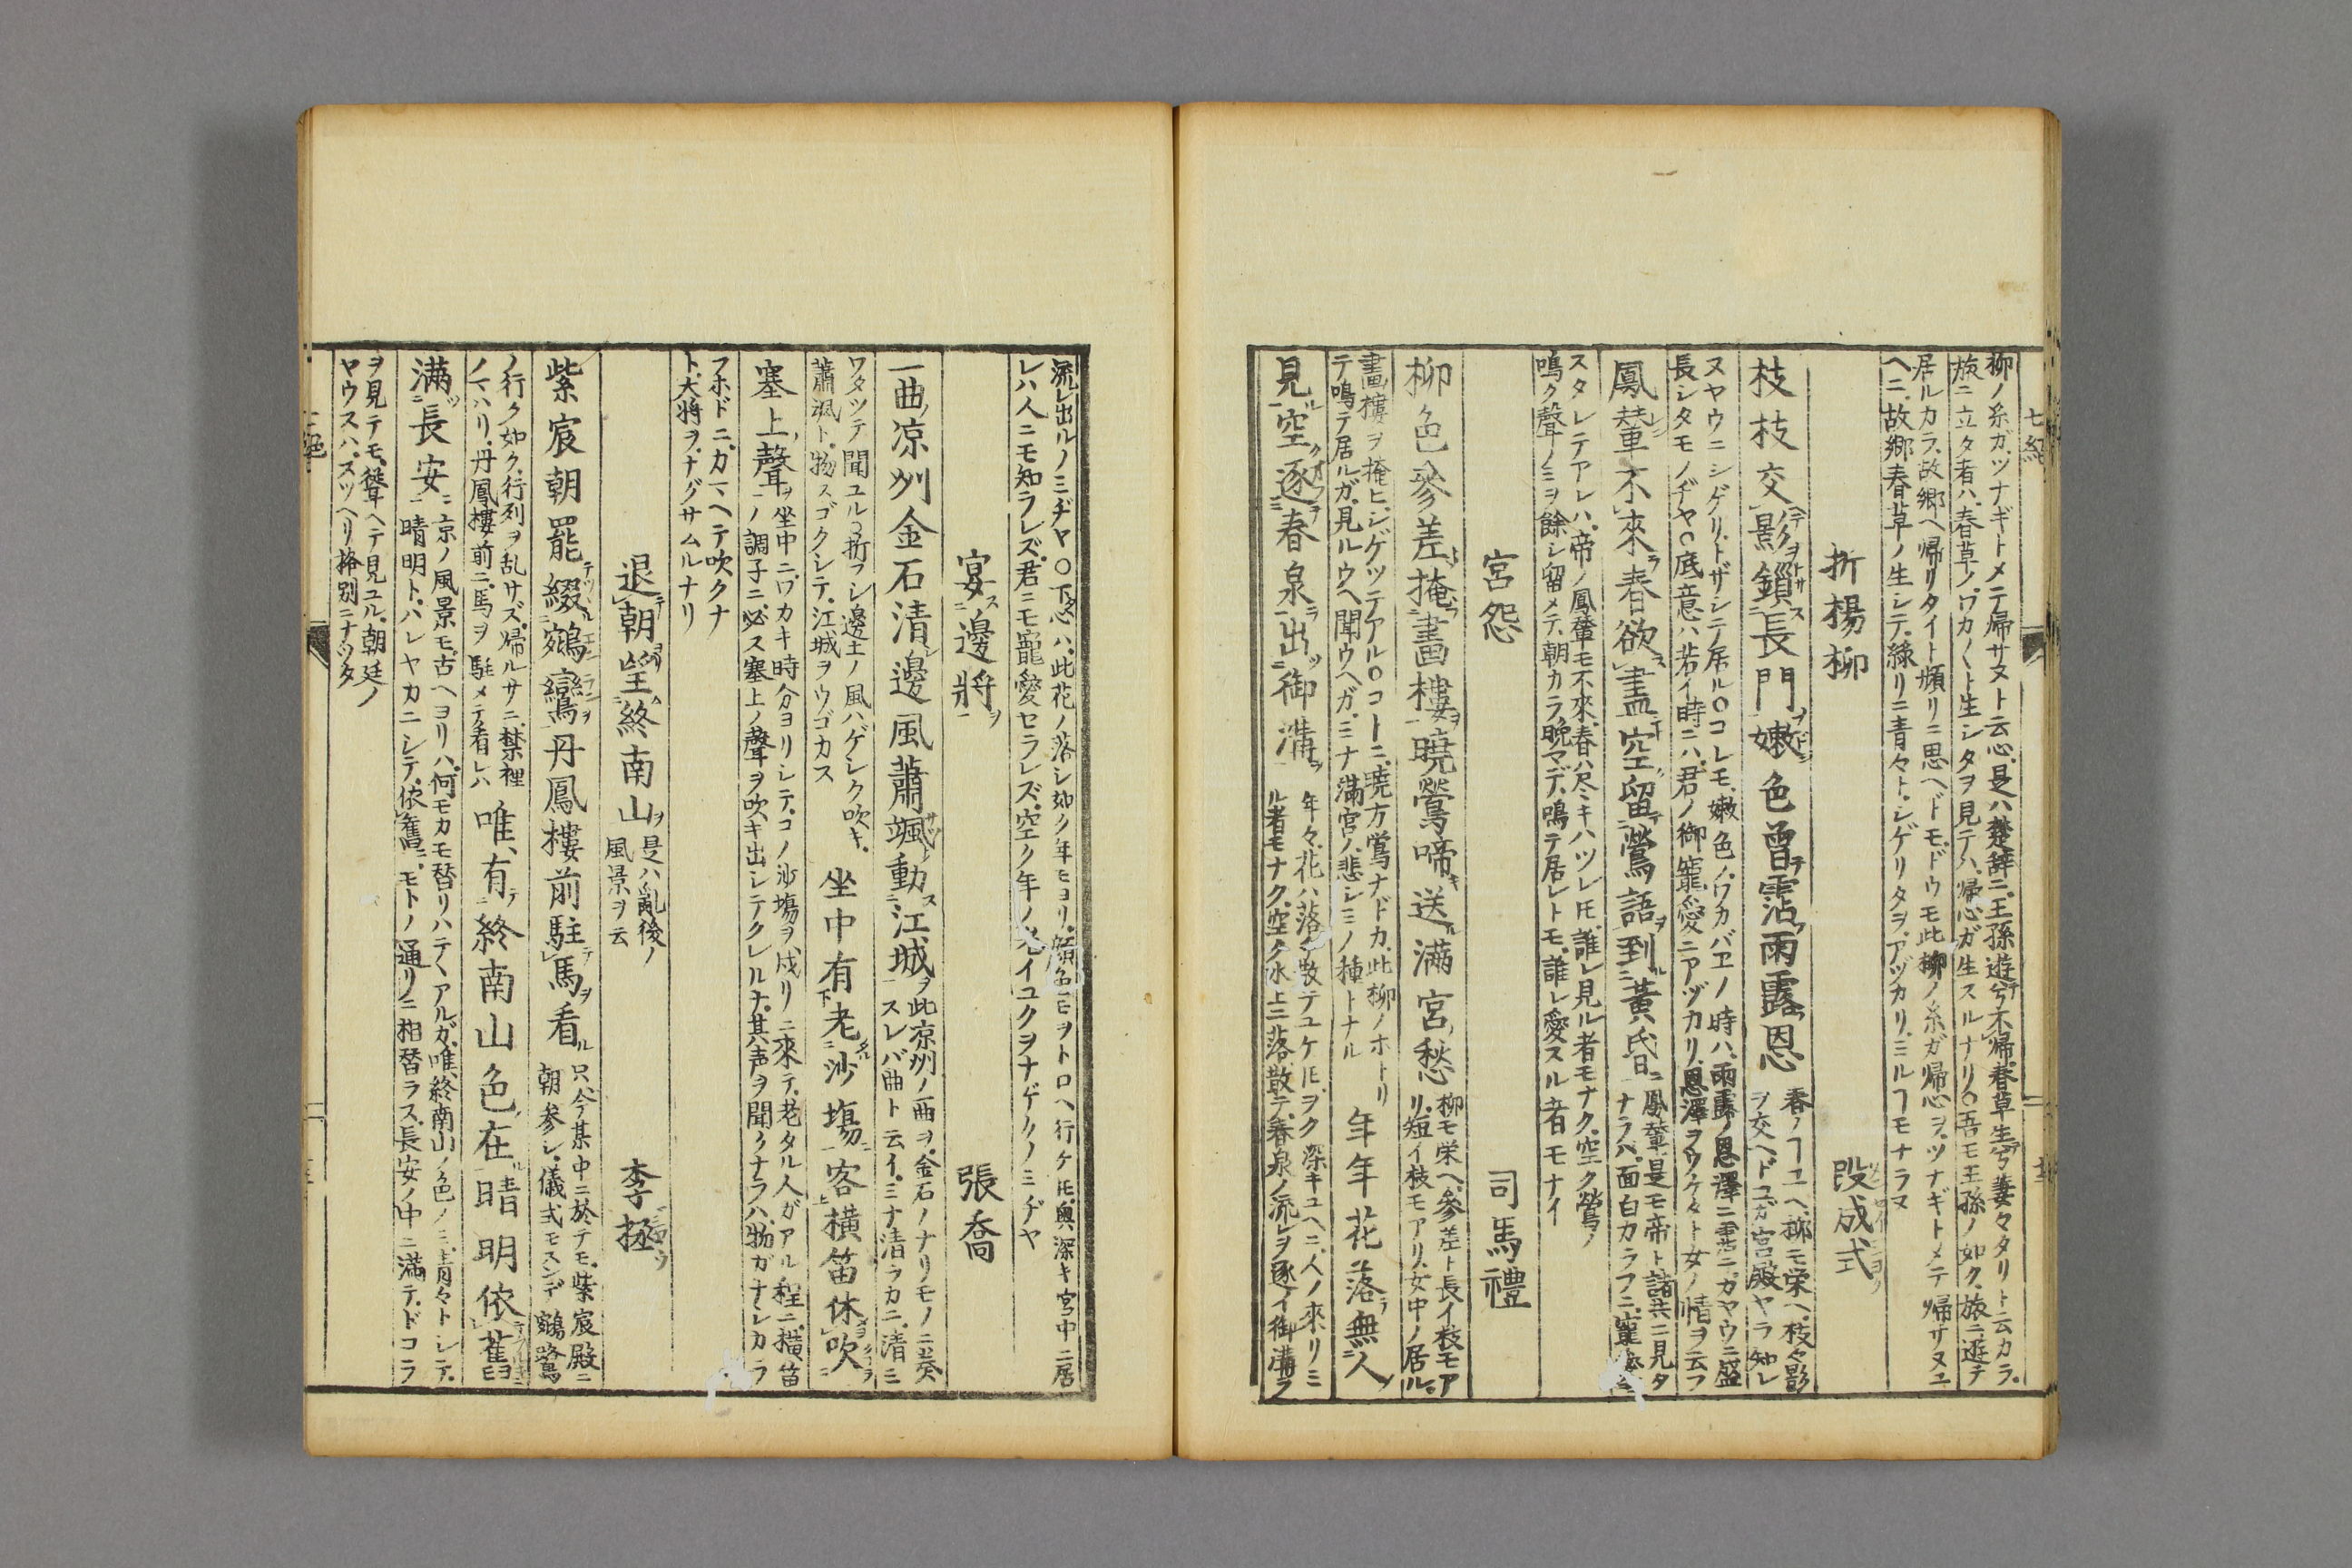 七絶
柳ノ糸ガ、ツナギトメテ帰サヌト云心、是ハ楚辞ニ、王孫遊兮不帰、春草生兮萋々タリト云カラ、
旅ニ立タ者ハ、春草ノ、ワカ〱ト生シタヲ見テハ、帰心ガ生スルナリ○吾モ王孫ノ如ク、旅ニ遊テ
居ルカラ、故郷ヘ帰リタイト頻リニ思ヘドモ、ドウモ此柳ノ糸ガ帰心ヲ、ツナギトメテ帰サヌユ
ヘニ、故郷春草ノ生シテ、緑リニ青々ト、シゲリタヲ、アヅカリ、ミルヿモナラヌ
折楊柳 段成式
枝枝交影鎖長門嫩色曽霑雨露恩
春ノヿユヘ、柳モ栄ヘ、枝々影
ヲ交ヘ、ドコガ宮殿ヤラ知レ
ヌヤウニシゲリ、トザシテ居ル○コレモ、嫩色ノ、ワカバエノ時ハ、雨露ノ恩澤ニ霑ニ、ガヤウニ盛
長シタモノヂヤ○底意ハ若イ時ニハ、君ノ御寵愛ニアヅカリ、恩澤ヲウケタト女ノ情ヲ云フ
鳳輦不來春欲盡空留鶯語到黄昏
鳳輦是モ帝ト諸共ニ見タ
ナラバ、面白カラフニ、
スタレテアレハ、帝ノ鳳輦モ不來、春ハ尽キハツレ𪜈、誰レ見ル者モナク、空ク鶯ノ
鳴ク聲ノミヲ餘シ留メテ、朝カラ晩マデ、鳴テ居レトモ、誰レ愛スル者モナイ
宮怨 司馬禮
柳色參差掩畫樓曉鶯啼送滿宮愁
柳モ栄ヘ、參差ト長イ枝モア
リ、短イ枝モアリ、女中ノ居ル、
畫樓ヲ掩ヒ、シゲツテアル○コトニ、曉方鶯ナドカ、此柳ノホトリ
テ鳴テ居ルガ、見ルウヘ聞ウヘガ、ミナ滿宮ノ、悲シミノ種トナル
年年花落無人
見空逐春泉出御溝
年々、花ハ落ク散テユケ𪜈、ヲク深キユヘニ、人ノ來リミ
ル者モナク、空ク水上ニ落散テ、春泉ノ流レヲ逐イ御溝ヲ
流レ出ルノミヂヤ○下心ハ、此花ノ落シ如ク年モヨリ、顔色モヲトロヘ行ケ𪜈、奥深キ宮中ニ居
レハ人ニモ知ラレズ、君ニモ寵愛セラレズ、空ク年ノ老イユクヲナゲクノミヂヤ
宴邊將 張喬
一曲凉州金石清邊風蕭颯動江城
此凉州ノ曲ヲ、金石ノナリモノニ奏
スレバ曲ト云イ、ミナ清ラカニ、清ミ
ワタツテ聞ユル○折フシ邊土ノ風ハゲシク吹キ、
蕭颯ト、物スゴクシテ、江城ヲウゴカス
坐中有老沙塲客横笛休吹
塞上聲
坐中ニ、ワカキ時分ヨリシテ、コノ沙塲ヲ戍リニ來テ、老タル人ガアル程ニ、横笛
ノ調子ニ、必ス塞上ノ聲ヲ吹キ出シテクレルナ、其声ヲ聞クナラハ、物ガナシカラ
フホドニ、カマヘテ吹クナ
ト、大將ヲ、ナグサムルナリ
退朝望終南山 李拯
是ハ亂後ノ
風景ヲ云
紫宸朝罷綴鵷鸞丹鳳樓前駐馬看
只今某中ニ於テモ、紫宸殿ニ
朝参シ、儀式モスンデ鵷鷺
ノ行ク如ク、行列ヲ乱サズ、帰ルサニ、禁裡
ノマハリ、丹鳳樓前ニ、馬ヲ駐メテ看レハ
唯有終南山色在晴明依舊
滿長安
京ノ風景モ、古ヘヨリハ、何モカモ替リハテヽアルガ、唯終南山ノ色ノミ、青々トシテ、
晴明ト、ハレヤカニシテ、依舊、モトノ通リニ相替ラス、長安ノ中ニ滿テ、ドコラ
ヲ見テモ、聳ヘテ見ユル、朝廷ノ
ヤウスハ、スツヘリ格別ニナツタ